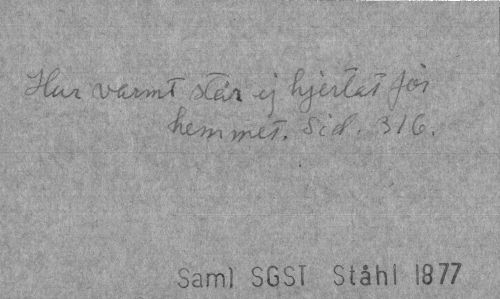 Hur varmt slår ej hjertat för
hemmet. Sid. 316.
Saml SGST Ståhl 1877